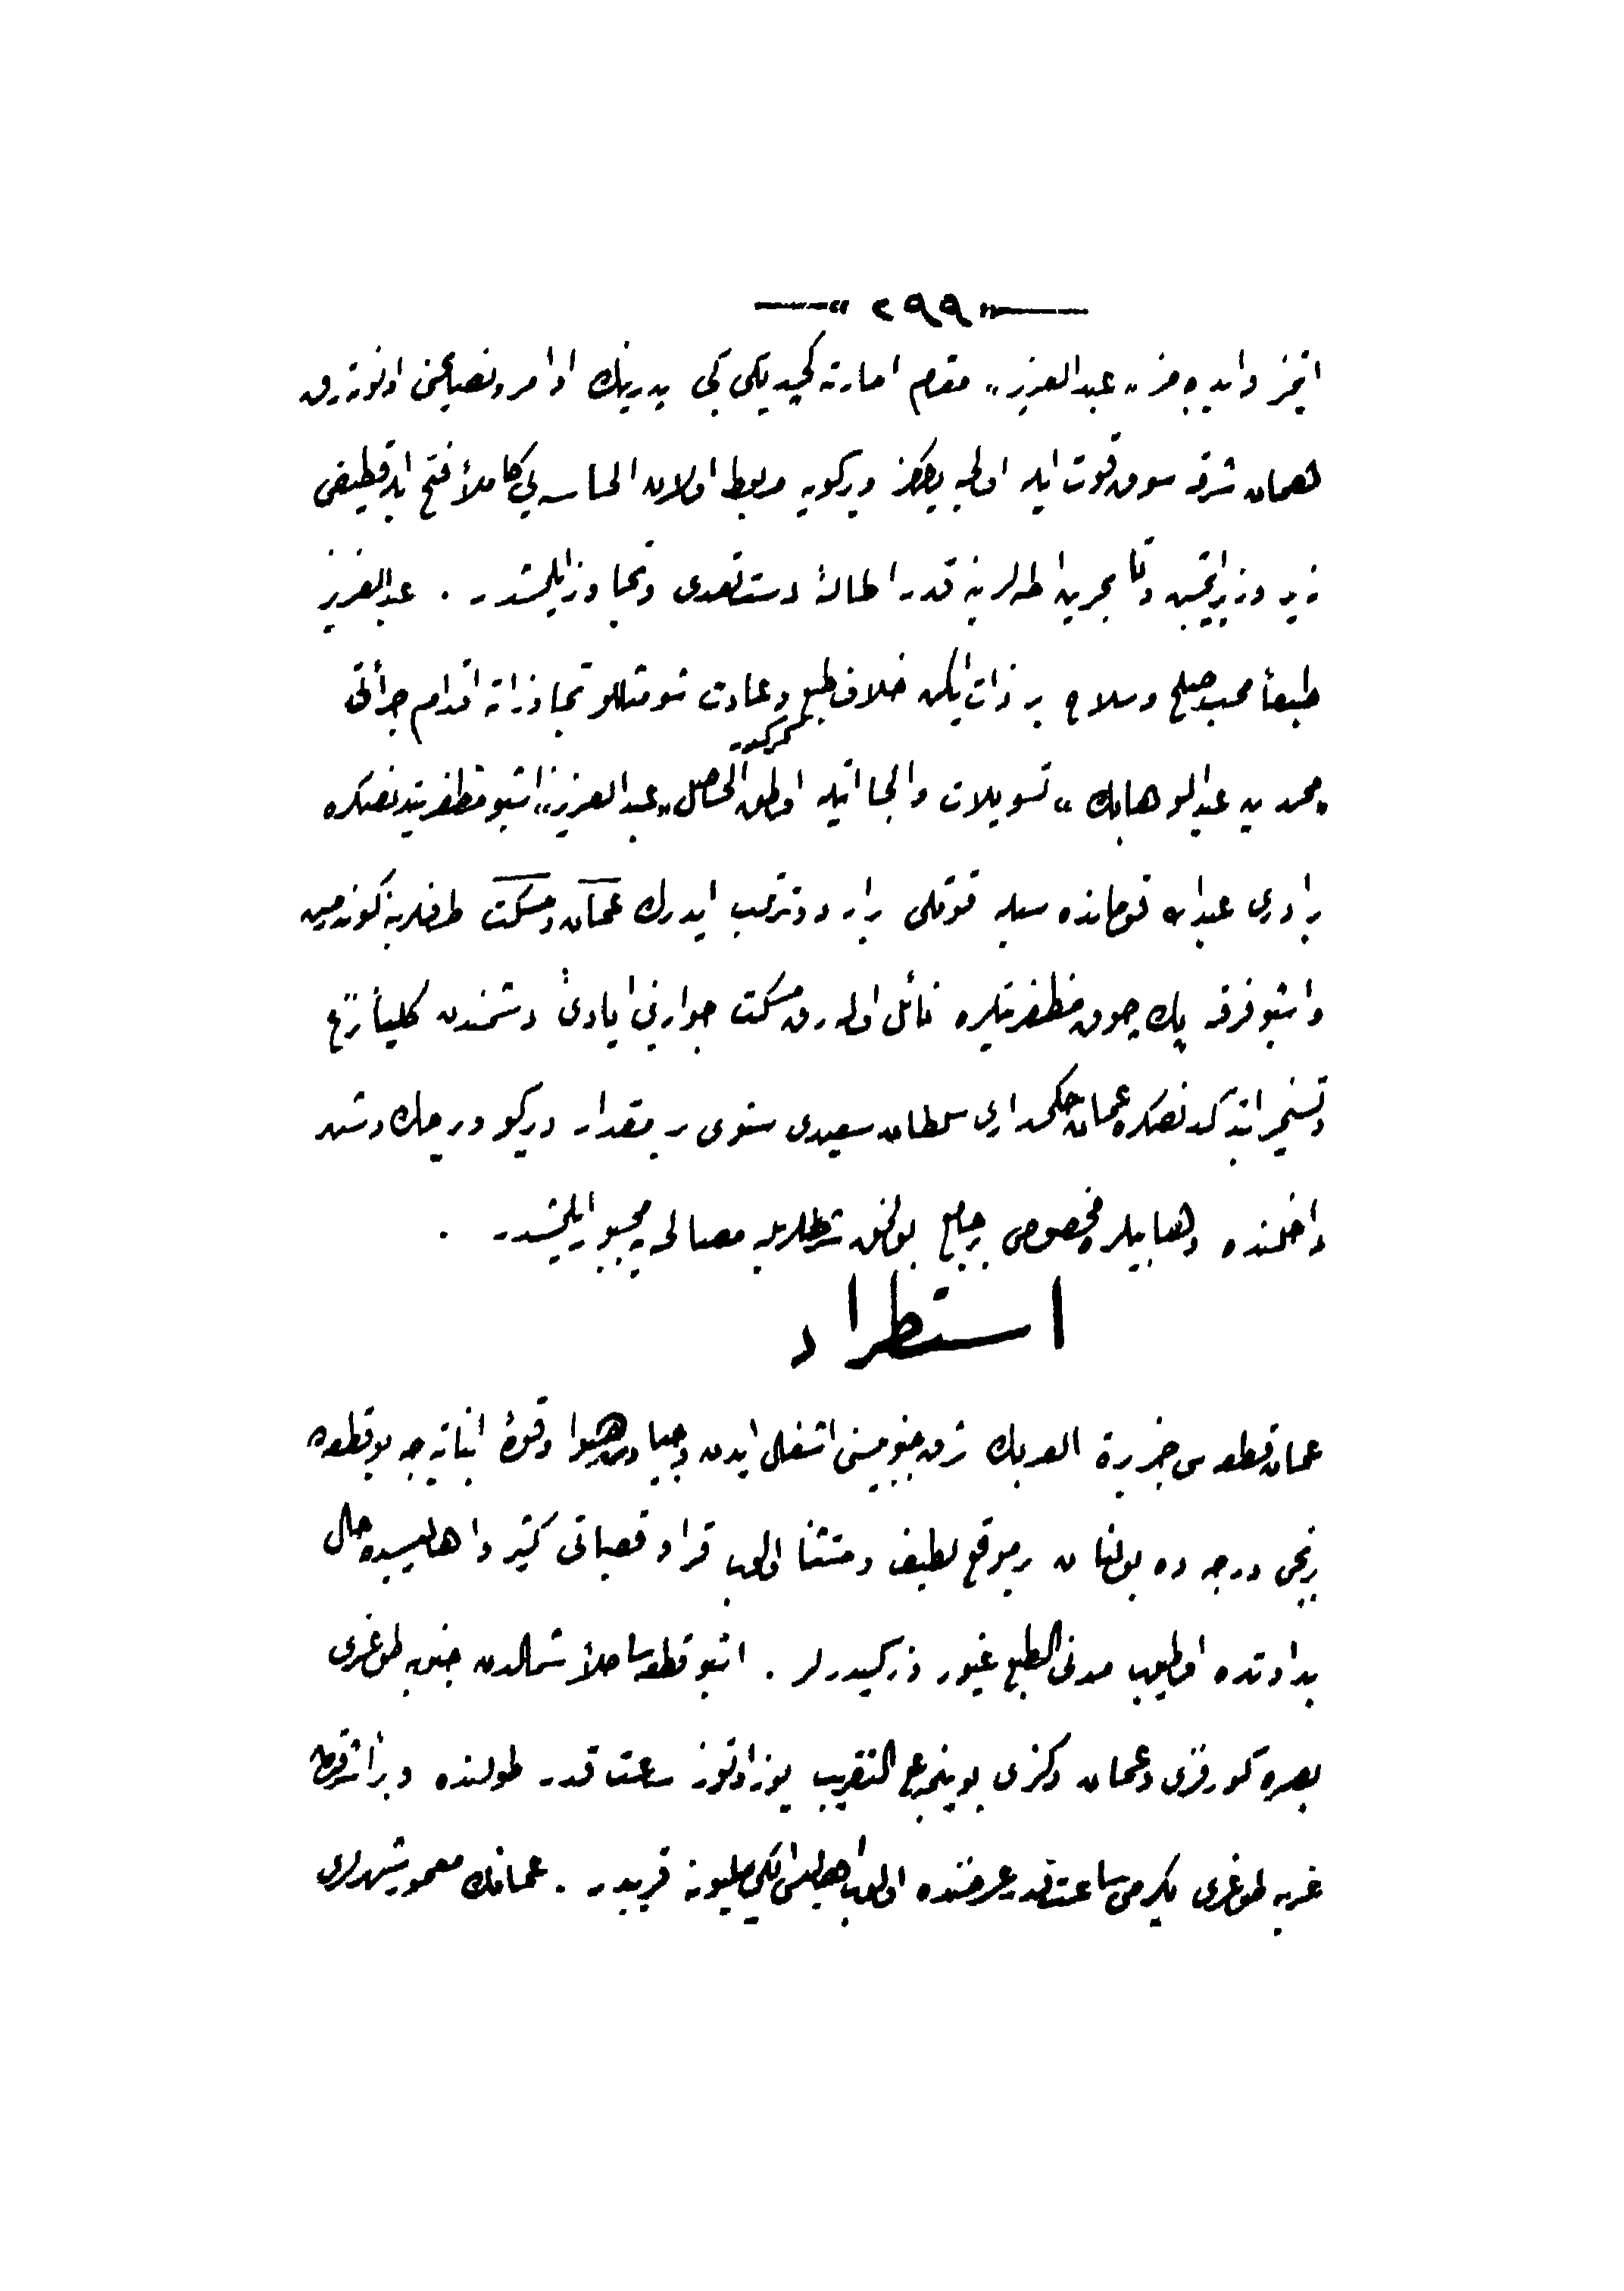 —«٢٩٩»—
اتمز وایده‌مز «عبد العزیز» مقام امارته کچدیکی کبی پدرینك اوامر ونصایحنی اونوته‌رق
همان شرقه سوق قوت ایله اولجه یالکز ویرکویه مربوط اولان الحسا سه‌یی کاملاً فتح ایله قطیفی
زیر وزبر ایتمش وتا بحرین اطه‌لرینه قدر اطالهٔ دست تعدی وتجاوز ایلمشدر . عبد العزیز
طبعاً محب صلح وسلاح بر ذات ایکن خلاف طبع وعادت شو مثللو تجاوزاته اقدام جرأتی
«محمد بن عبد الوهابك» تسویلات والجاآتیله اولمق کرکدر الحاصل «عبد العزیز» اشبو مظفریتدنصکره
برادری عبد الله قومانده سیله قوتلی بر اردو ترتیب ایدرك عمان ومسکت طرفلرینه کوندرمش
واشبو فرقه پك چوق مظفریتلره نائل اوله‌رق مسکت جوارینی ایادیٔ دشمندن کلیاً نزع
وتسخیر ایتدکدنصکره عمان حکمداری سلطان سعیدی سنوی بر مقدار ویرکو ویرمك وشهر
داخلنده وهابیلره مخصوص بر جامع بولنمق شرطلریله مصالحه‌یه مجبور ایلمشدر .
استطراد
عمان قطعه‌سی جزیرة العربك شرق جنوبیسنی اشغال ایدن وجیادت هوا وقوهٔ انباتیه‌جه بو قطعه‌نك
برنجی درجه ده بولنان بر موقع لطیف ومستثنا اولوب قرا وقصباتی کثیر واهالیسیده حال
بداوتده اولمیوب مدنی الطبع غیور وزرکیدرلر . اشبو قطعه ساحلاً شمالدن جنوبه طوغری
بصره کورفزی وعمان دکزی بوینجه علی التقریب یوز اوتوز ساعت قدر طولنده وبراً شرقدن
غربه طوغری یکرمی ساعت قدر عرضنده اولوب اهالیسی ایکی ملیونه قریبدر . عمانك معمور شهرلری